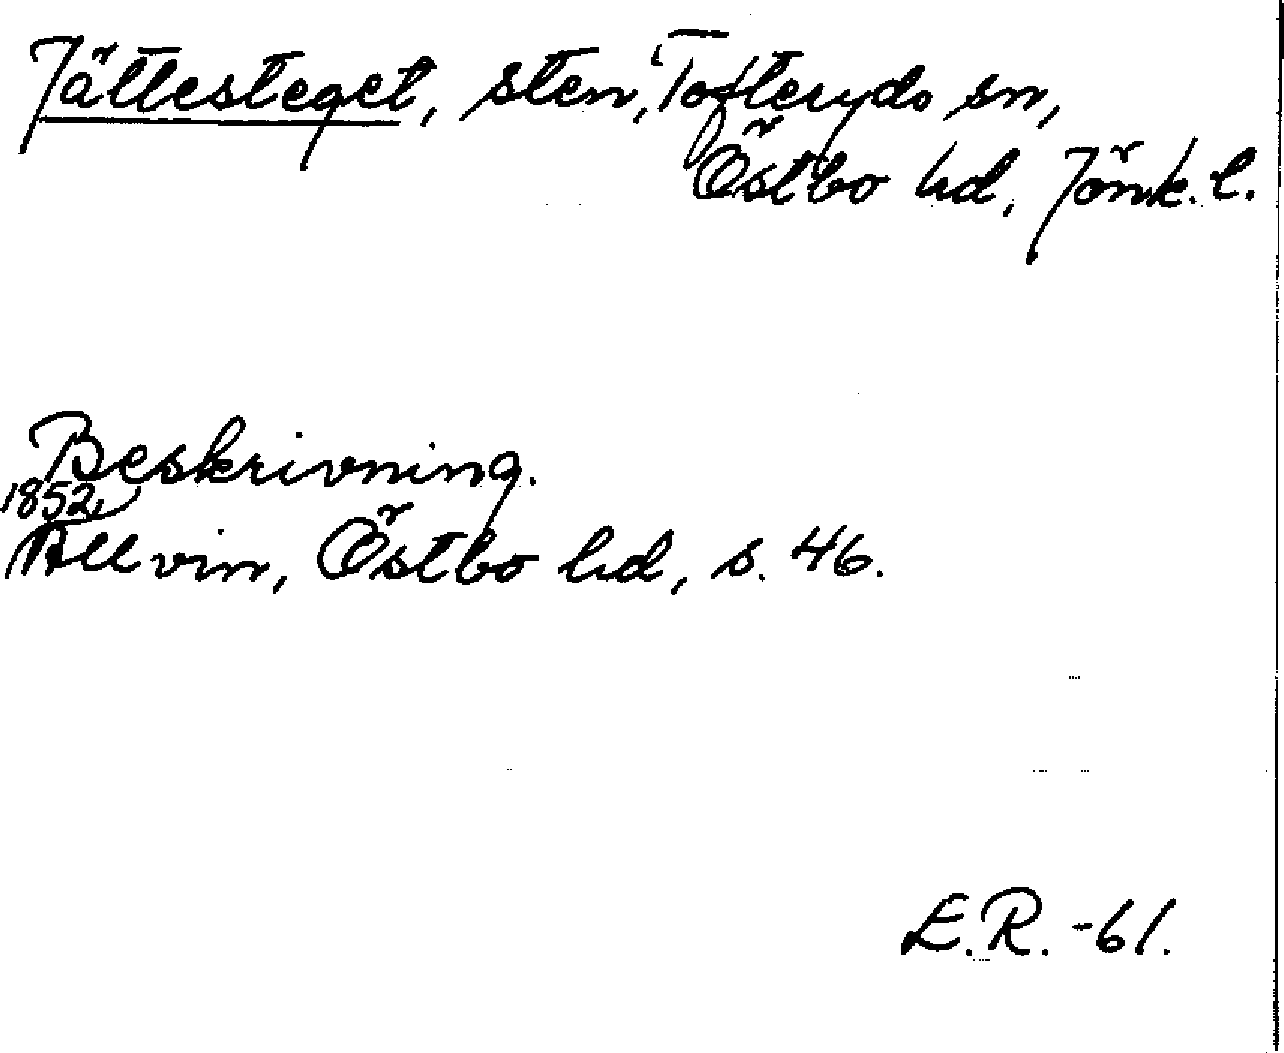 Jättesteget, sten, Tofteryds sn,
Östbo hd, Jönk. l.
Beskrivning.
1852,
Allvin, Östbo hd, s. 46.
E.R. -61.